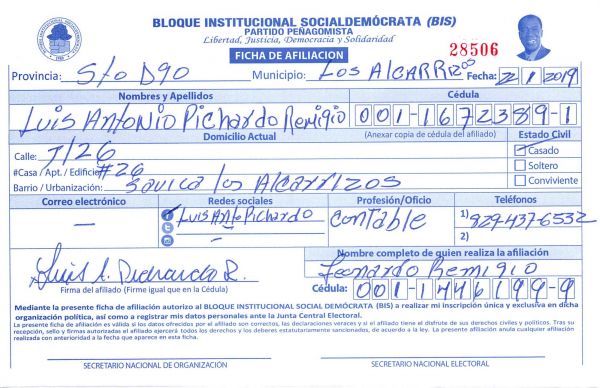 BLOQUE INSTITUCIONAL SOCIALDEMÓCRATA (BIS)
PARTIDO PEÑAGOMISTA
Libertad, Justicia, Democracia y Solidaridad
FICHA DE AFILIACION
28506
Provincia: Sto Dgo Municipio: Los Alcarrizos Fecha: 2 1 2019
Nombres y Apellidos Cédula
Luis Antonio Pichardo Remigio 001-1672389-1
Domicilio Actual (Anexar copia de cédula del afiliado) Estado Civil
Calle: 7/26 Casado
#Casa / Apt. / Edificio #26 Soltero
Barrio / Urbanización: Savica los Alcarrizos Conviviente
Correo electrónico Redes sociales Profesión/Oficio Teléfonos
— Luis Anto Pichardo Contable 1) 829-437-6532
— 2)
Luis A. Pichardo R.
Firma del afiliado (Firme igual que en la Cédula)
Nombre completo de quien realiza la afiliación
Leonardo Remigio
Cédula: 001-1446199-9
Mediante la presente ficha de afiliación autorizo al BLOQUE INSTITUCIONAL SOCIAL DEMÓCRATA (BIS) a realizar mi inscripción única y exclusiva en dicha
organización política, así como a registrar mis datos personales ante la Junta Central Electoral.
La presente ficha de afiliación es válida si los datos ofrecidos por el afiliado son correctos, las declaraciones veraces y si el afiliado tiene el disfrute de sus derechos civiles y políticos. Tras su
recepción, sello y firmas autorizadas el afiliado ejercerá todos los derechos y los deberes estatutariamente sancionados, de acuerdo a la ley. La presente afiliación anula cualquier afiliación
realizada con anterioridad a la fecha que aparece en esta ficha.
SECRETARIO NACIONAL DE ORGANIZACIÓN SECRETARIO NACIONAL ELECTORAL